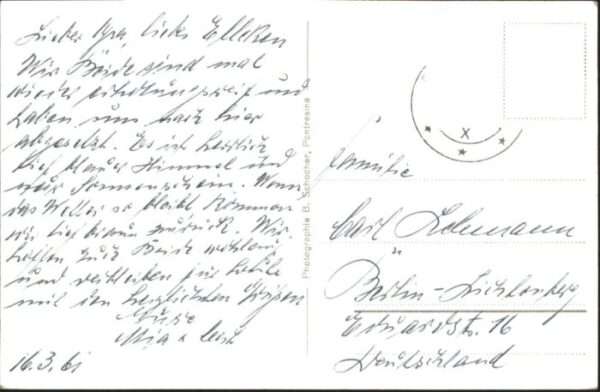 Lieber Opa, liebes Ellchen
Wir Beide sind mal
wieder erholungsreif und
haben uns nach hier
abgesetzt. Es ist herrlich
tief blauer Himmel und
nur Sonnenschein. Wenn
das Wetter so bleibt kommen
wir tief braun zurück. Wir
hoffen Euch Beide wohlauf
und verbleiben für heute
mit den herzlichsten Grüßen
Eure
Mia &
16.3.61
Photographie B. Schocher, Pontresina
X
Familie
Carl Lehmann
Berlin-Lichtenberg
Eduardstr. 16
Deutschland